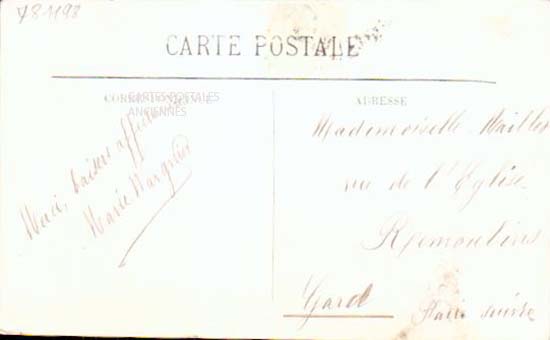 78-1198
CARTE POSTALE
CORRESPONDANCE
CARTES POSTALES
ANCIENNES
ADRESSE
Merci, baisers affectueux
Marie
Mademoiselle
rue de l'Eglise
Remoulins
Gard